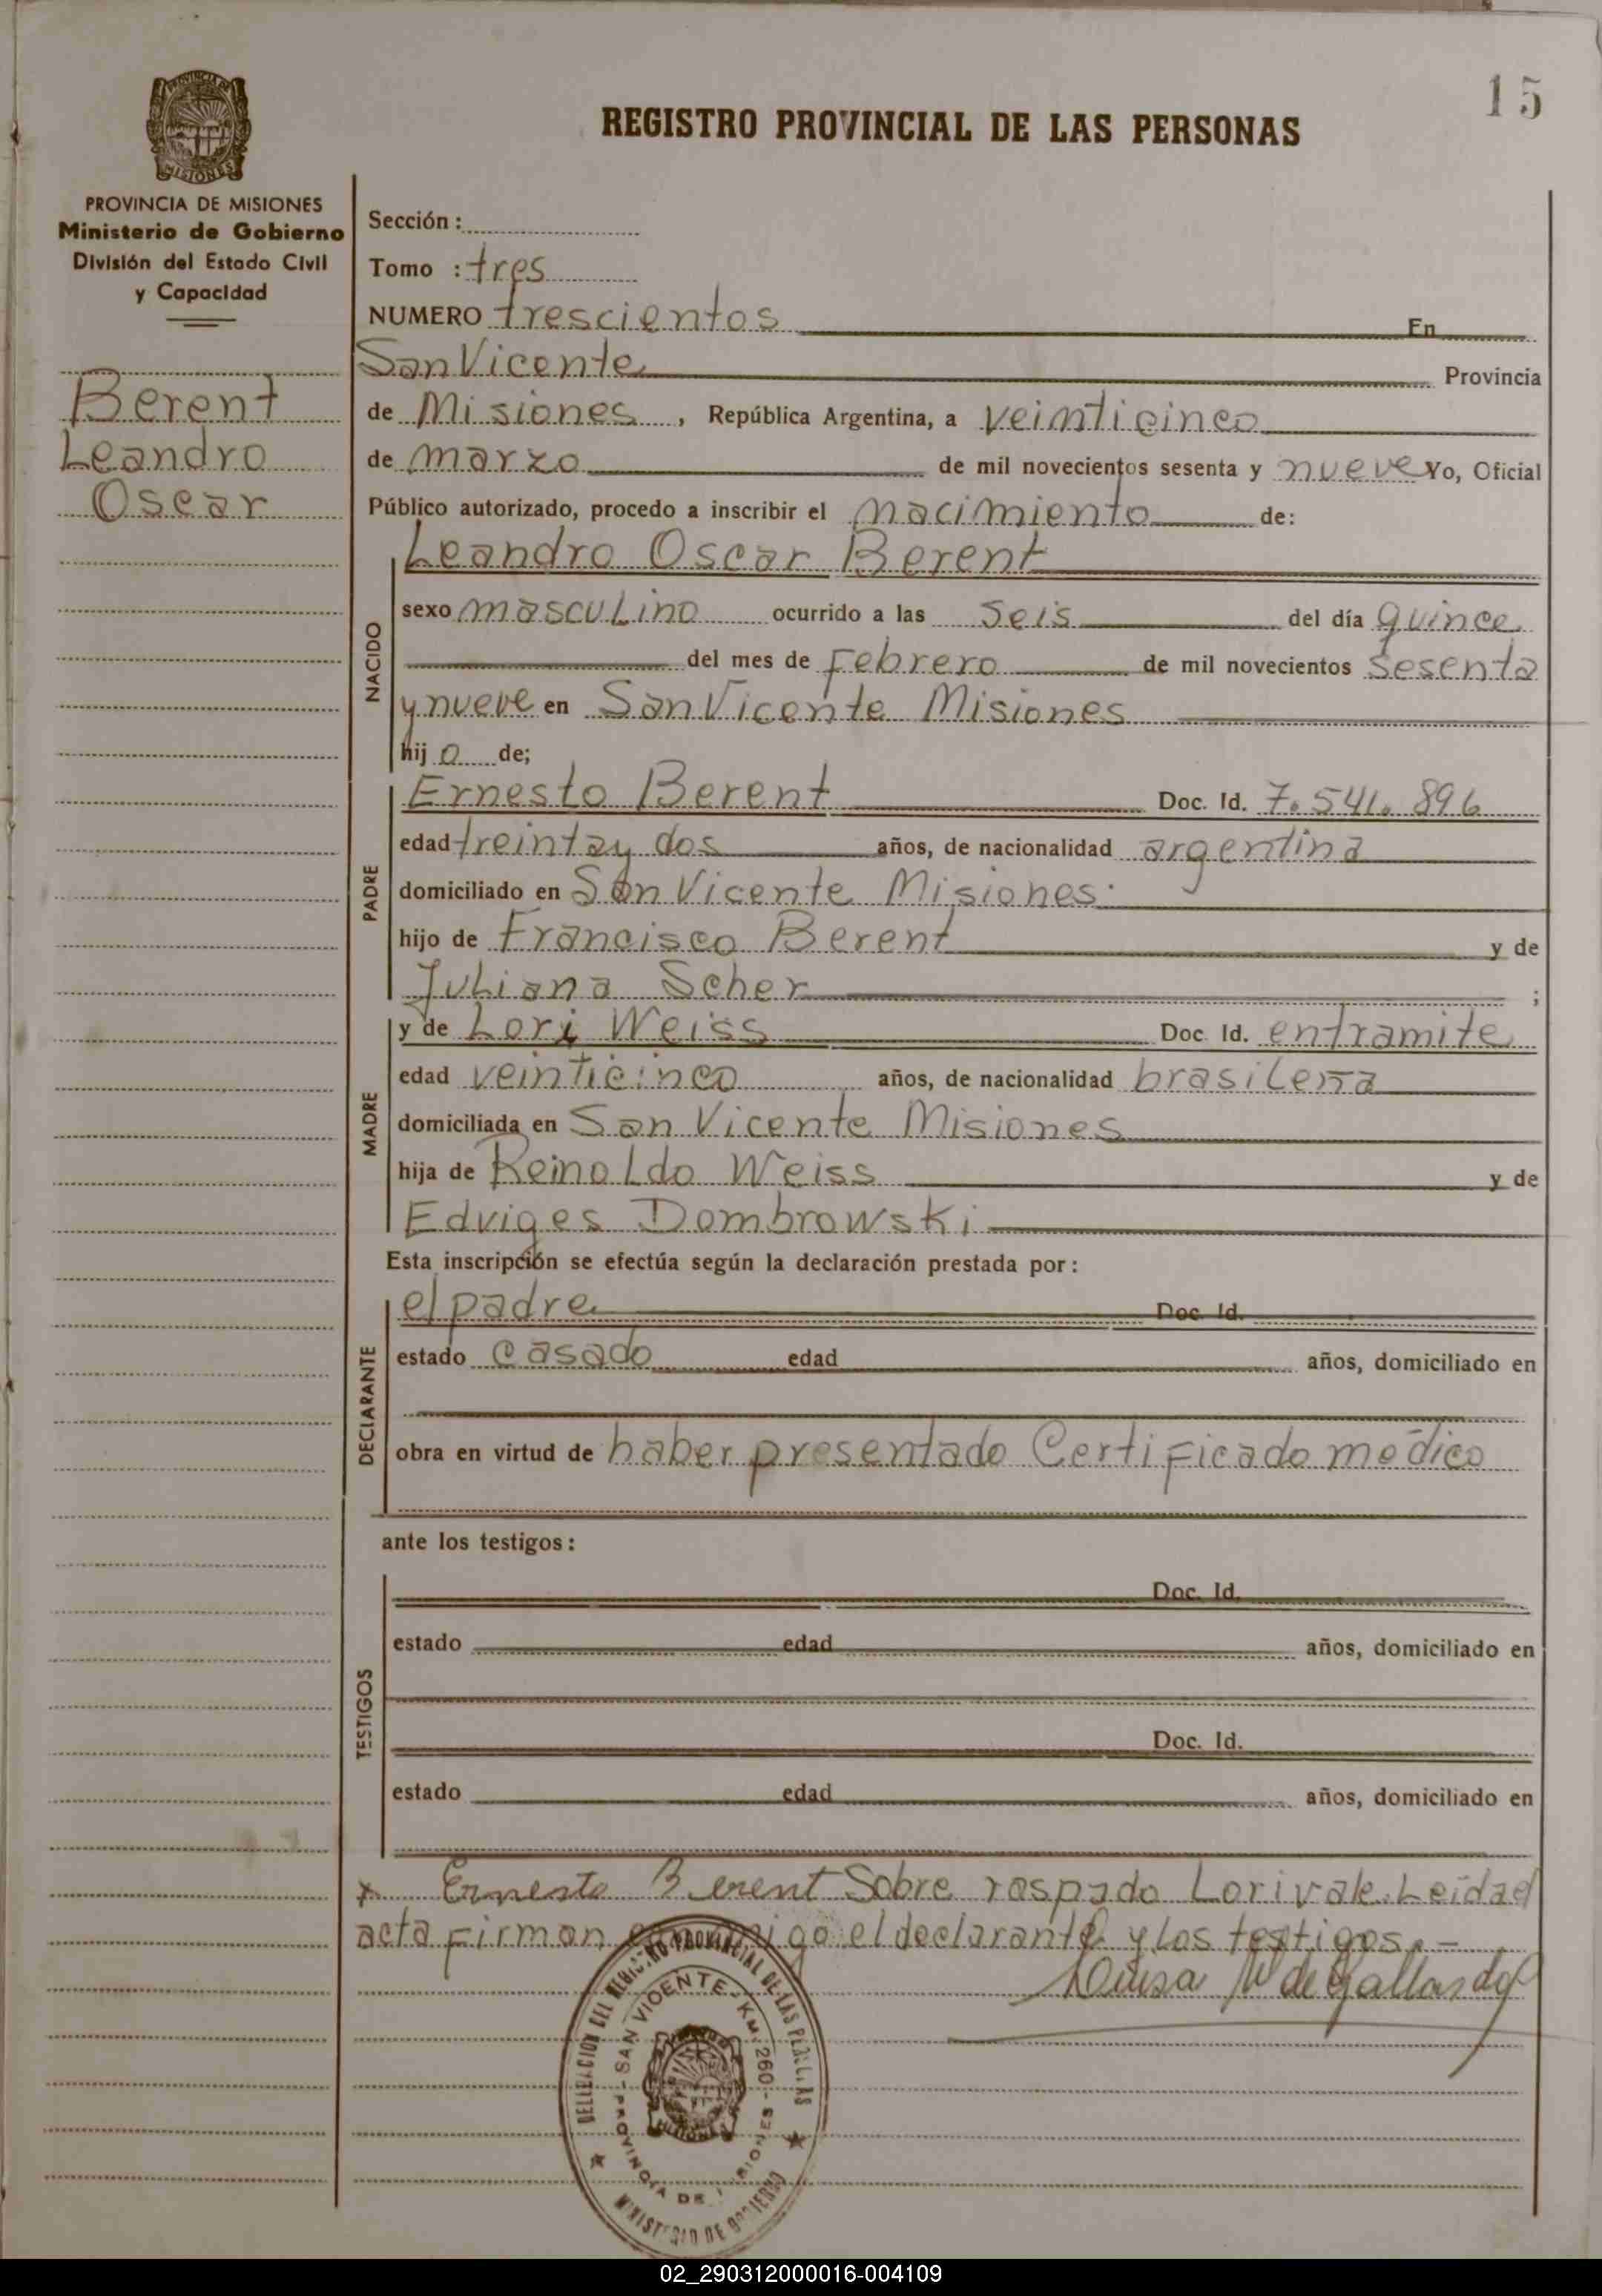 15
REGISTRO PROVINCIAL DE LAS PERSONAS
PROVINCIA DE MISIONES
Ministerio de Gobierno
División del Estado Civil
y Capacidad
Berent
Leandro
Oscar
Sección :
Tomo : tres
NUMERO trescientos En
San Vicente Provincia
de Misiones , República Argentina, a veinticinco
de marzo de mil novecientos sesenta y nueve Yo, Oficial
Público autorizado, procedo a inscribir el nacimiento de:
NACIDO
Leandro Oscar Berent
sexo masculino ocurrido a las seis del día quince
del mes de Febrero de mil novecientos sesenta
y nueve en San Vicente Misiones
hij o de;
PADRE
Ernesto Berent Doc. Id. 7.541.896
edad treinta y dos años, de nacionalidad argentina
domiciliado en San Vicente Misiones.
hijo de Francisco Berent y de
Juliana Scher ;
MADRE
y de Lori Weiss Doc. Id. entramite
edad veinticinco años, de nacionalidad brasileña
domiciliada en San Vicente Misiones
hija de Reinoldo Weiss y de
Edviges Dombrowski
Esta inscripción se efectúa según la declaración prestada por :
DECLARANTE
el padre Doc. Id.
estado casado edad años, domiciliado en
obra en virtud de haber presentado Certificado médico
ante los testigos :
TESTIGOS
Doc. Id.
estado edad años, domiciliado en
Doc. Id.
estado edad años, domiciliado en
x Ernesto Berent Sobre raspado Lori vale. Leida el
acta firman conmigo el declarante y los testigos. -
Luisa de Gallardo
DELEGACION DEL REGISTRO PROVINCIAL DE LAS PERSONAS
SAN VICENTE - Km. 260 - PROVINCIA DE MISIONES
MINISTERIO DE GOBIERNO
02_290312000016-004109